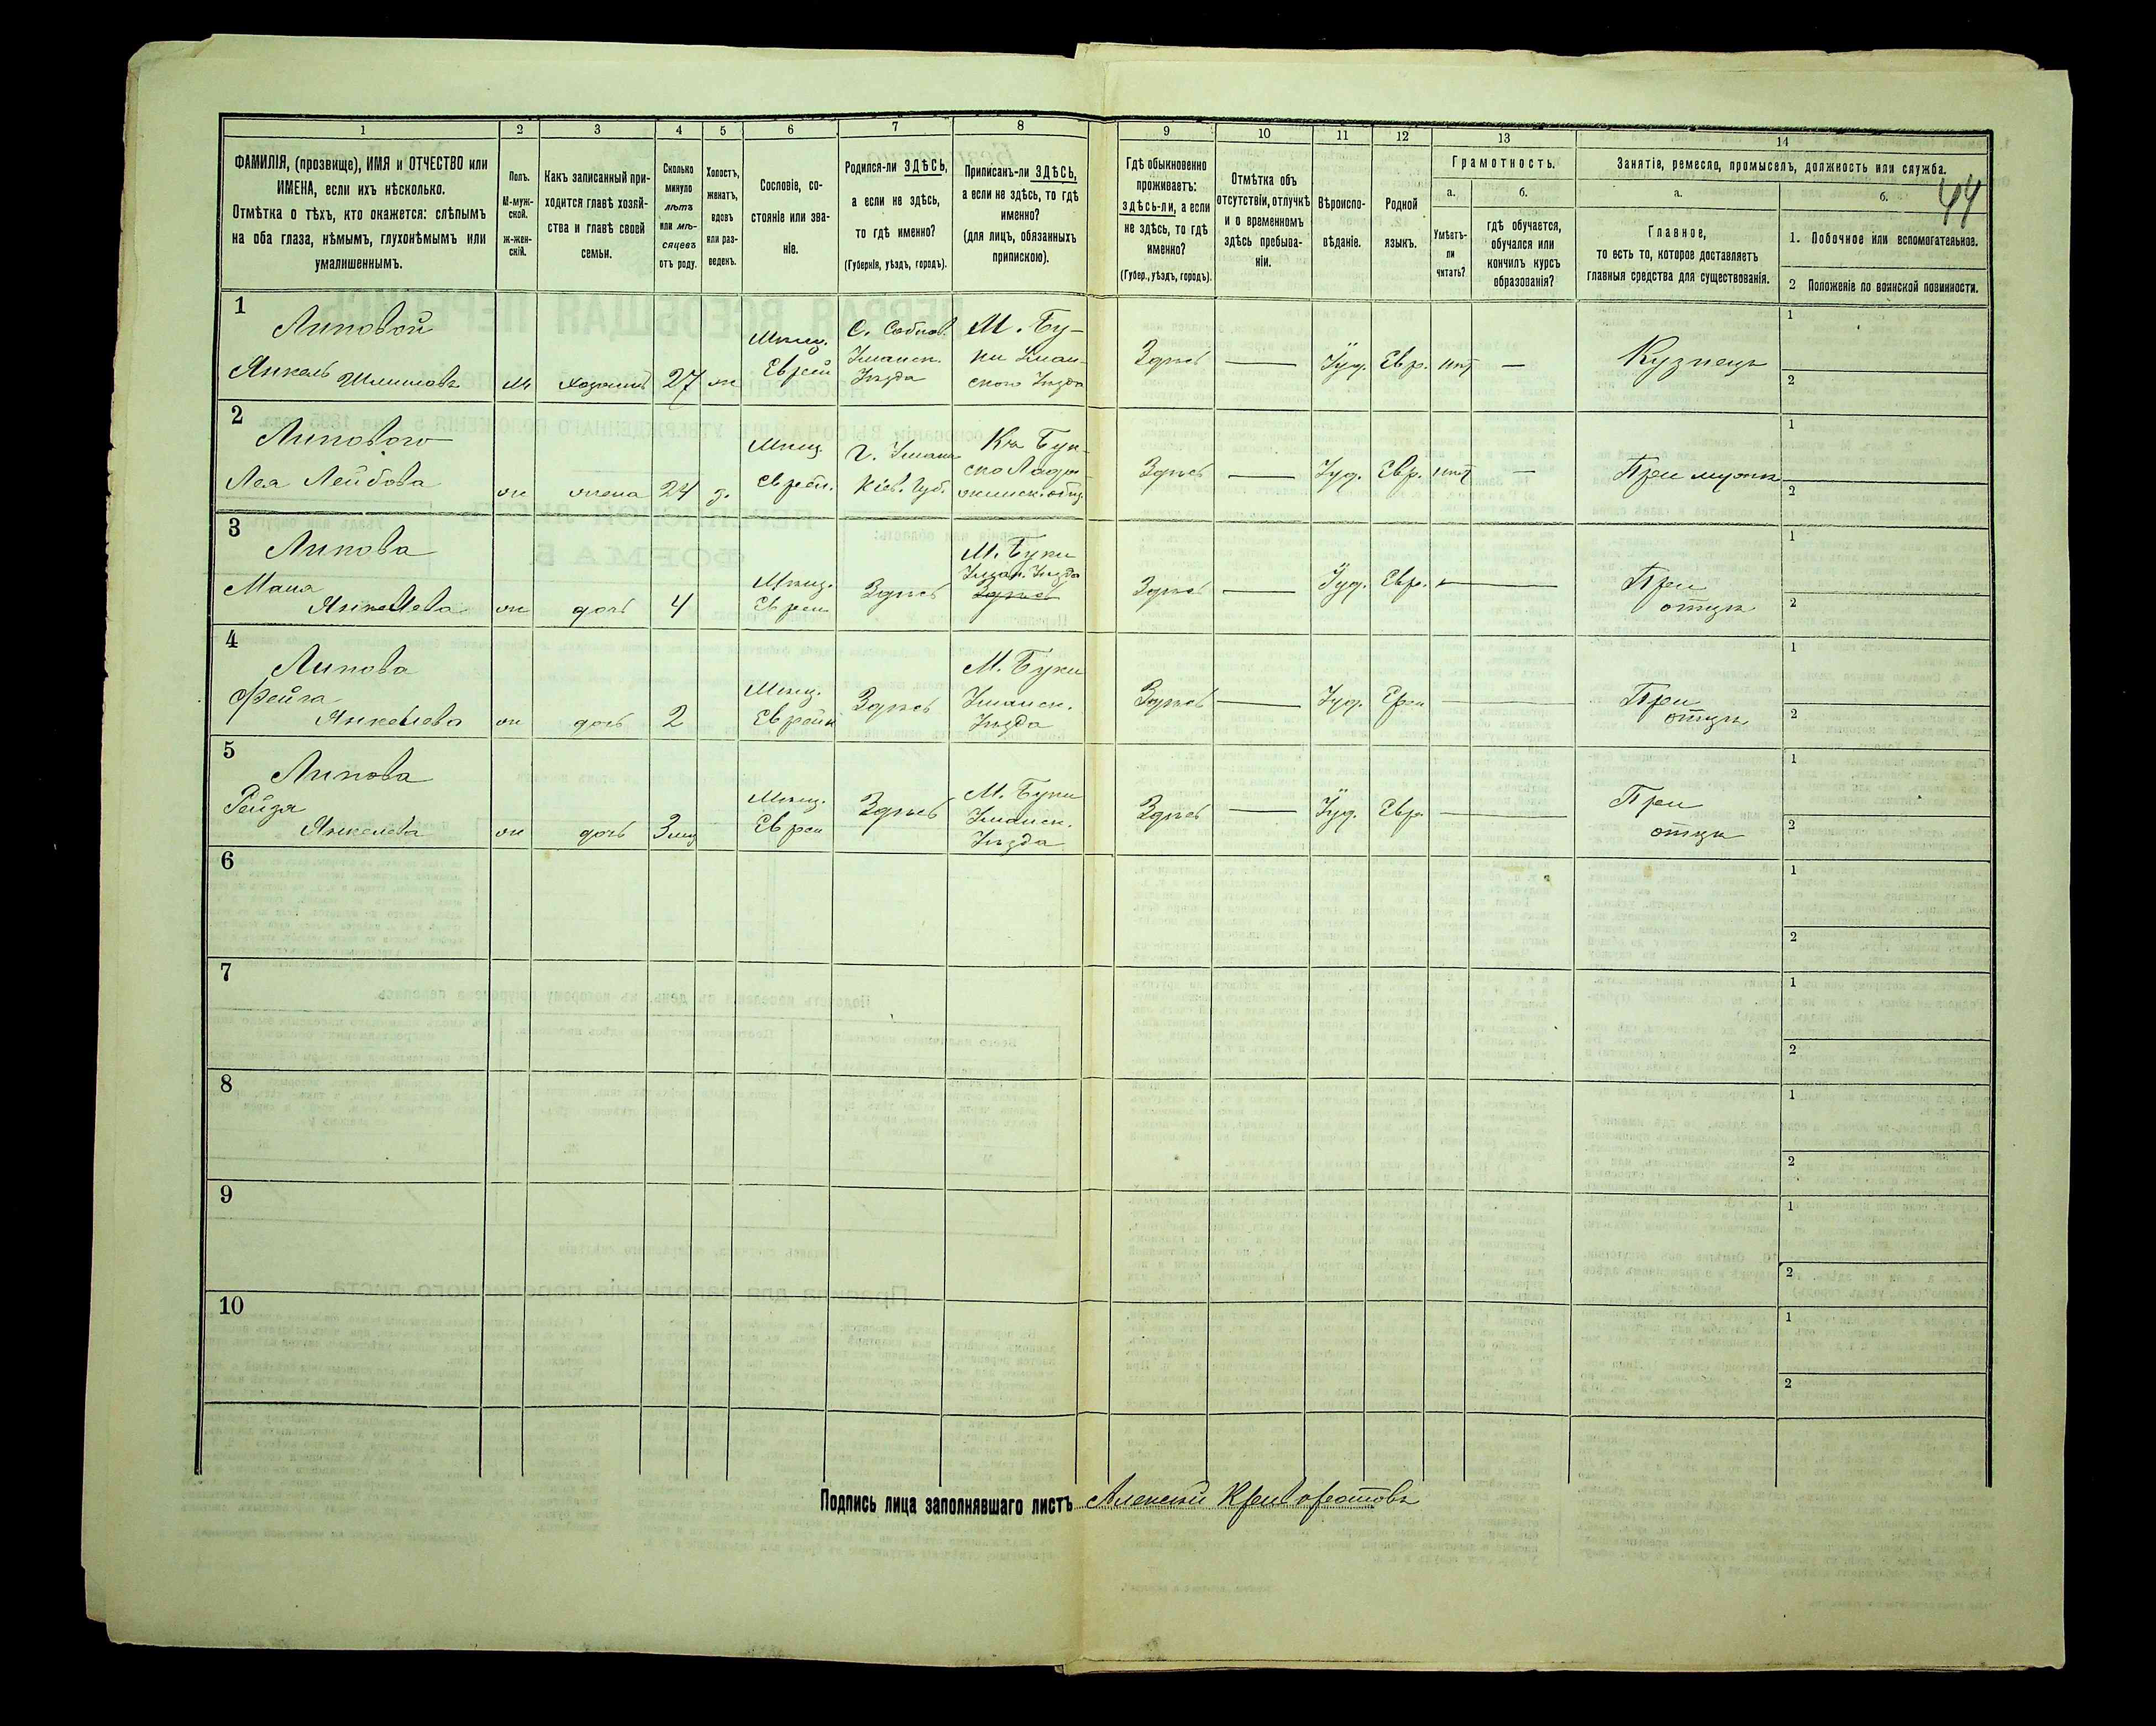 44
1 2 3 4 5 6 7 8 9 10 11 12 13 14
ФАМИЛІЯ, (прозвище), ИМЯ и ОТЧЕСТВО или
ИМЕНА, если ихъ нѣсколько.
Отмѣтка о тѣхъ, кто окажется: слѣпымъ
на оба глаза, нѣмымъ, глухонѣмымъ или
умалишеннымъ.
Полъ.
М-муж-
ской.
ж-жен-
скій.
Какъ записанный при-
ходится главѣ хозяй-
ства и главѣ своей
семьи.
Сколько
минуло
лѣтъ
или мѣ-
сяцевъ
отъ роду.
Холостъ,
женатъ,
вдовъ
или раз-
веденъ.
Сословіе, со-
стояніе или зва-
ніе.
Родился-ли ЗДѢСЬ,
а если не здѣсь,
то гдѣ именно?
(Губернія, уѣздъ, городъ).
Приписанъ-ли ЗДѢСЬ,
а если не здѣсь, то гдѣ
именно?
(для лицъ, обязанныхъ
припискою).
Гдѣ обыкновенно
проживаетъ:
здѣсь-ли, а если
не здѣсь, то гдѣ
именно?
(Губер., уѣздъ, городъ).
Отмѣтка объ
отсутствіи, отлучкѣ
и о временномъ
здѣсь пребыва-
ніи.
Вѣроиспо-
вѣданіе.
Родной
языкъ.
Грамотность.
а.
Умѣетъ-
ли
читать?
б.
гдѣ обучается,
обучался или
кончилъ курсъ
образованія?
Занятіе, ремесло, промыселъ, должность или служба.
а.
Главное,
то есть то, которое доставляетъ
главныя средства для существованія.
б.
1. Побочное или вспомогательное.
2 Положеніе по воинской повинности.
1
Липовой
Янкель Шлимовъ
м
хозяинъ
27
ж
Мѣщ.
Еврей
Уманск.
Уѣзда
М. Бу-
ки Уман-
ского Уѣзда
Здѣсь
—
Іуд.
Евр.
нѣт
—
Кузнецъ
1
2
2
Липового
Лея Лейбова
ж
жена
24
з.
Мѣщ
Еврей.
г. Умань
Кіев. Губ.
Здѣсь
—
Іуд.
Евр.
нѣт
—
При мужѣ
1
2
3
Липова
Маня
Янкелева
ж
дочь
4
Мѣщ.
Евреи
Здѣсь
М. Буки
Уман. Уѣзда
Здѣсь
Здѣсь
—
Іуд.
Евр.
—
При
отцѣ
1
2
4
Липова
Фейга
Янкелева
ж
дочь
2
Мѣщ.
Еврейк
Здѣсь
М. Буки
Уманск.
Уѣзда
Здѣсь
—
Іуд.
—
При
отцѣ
1
2
5
Липова
Рейзя
Янкелева
ж
дочь
3 мѣс
Мѣщ.
Евреи
Здѣсь
М. Буки
Уманск.
Уѣзда
Здѣсь
—
Іуд.
Евр
—
При
отцѣ
1
2
6
1
2
7
1
2
8
1
2
9
1
2
10
1
2
Подпись лица заполнявшаго листъ Алексѣй